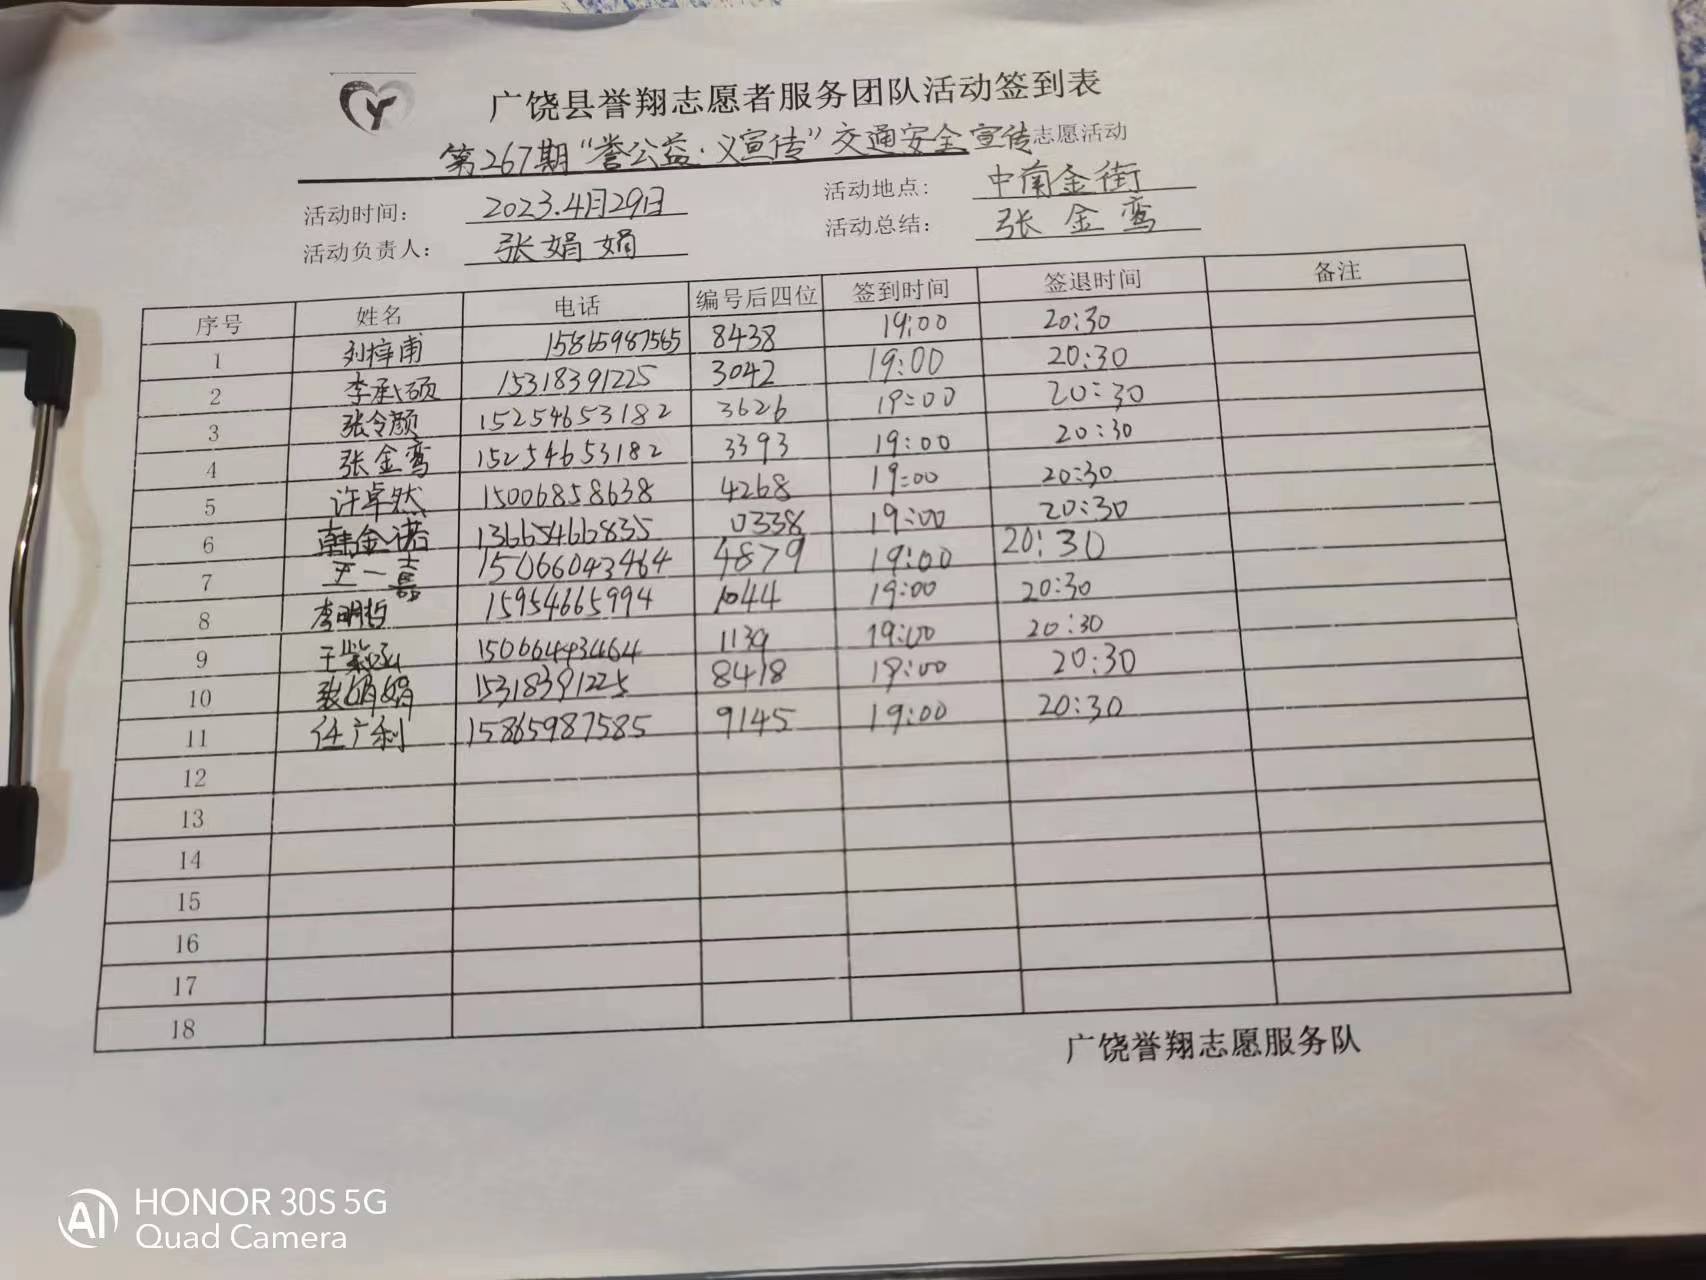 广饶县誉翔志愿者服务团队活动签到表
第267期“誉公益·义宣传”交通安全宣传志愿活动
活动时间： 2023.4月29日 活动地点： 中南金街
活动负责人： 张娟娟 活动总结： 张金鸾
序号 姓名 电话 编号后四位 签到时间 签退时间 备注
1 刘梓甫 15865987565 8438 19:00 20:30
2 李承硕 15318391225 3042 19:00 20:30
3 张令颜 15254653182 3626 19:00 20:30
4 张金鸾 15254653182 3393 19:00 20:30
5 许卓然 15006858638 4268 19:00 20:30
6 韩金诺 13665466835 0338 19:00 20:30
7 王一嘉 15066043464 4879 19:00 20:30
8 李明哲 15954665994 1044 19:00 20:30
9 王紫涵 15066443464 1139 19:00 20:30
10 张娟娟 15318391225 8418 19:00 20:30
11 任广利 15865987585 9145 19:00 20:30
12
13
14
15
16
17
18
广饶誉翔志愿服务队
AI HONOR 30S 5G
Quad Camera